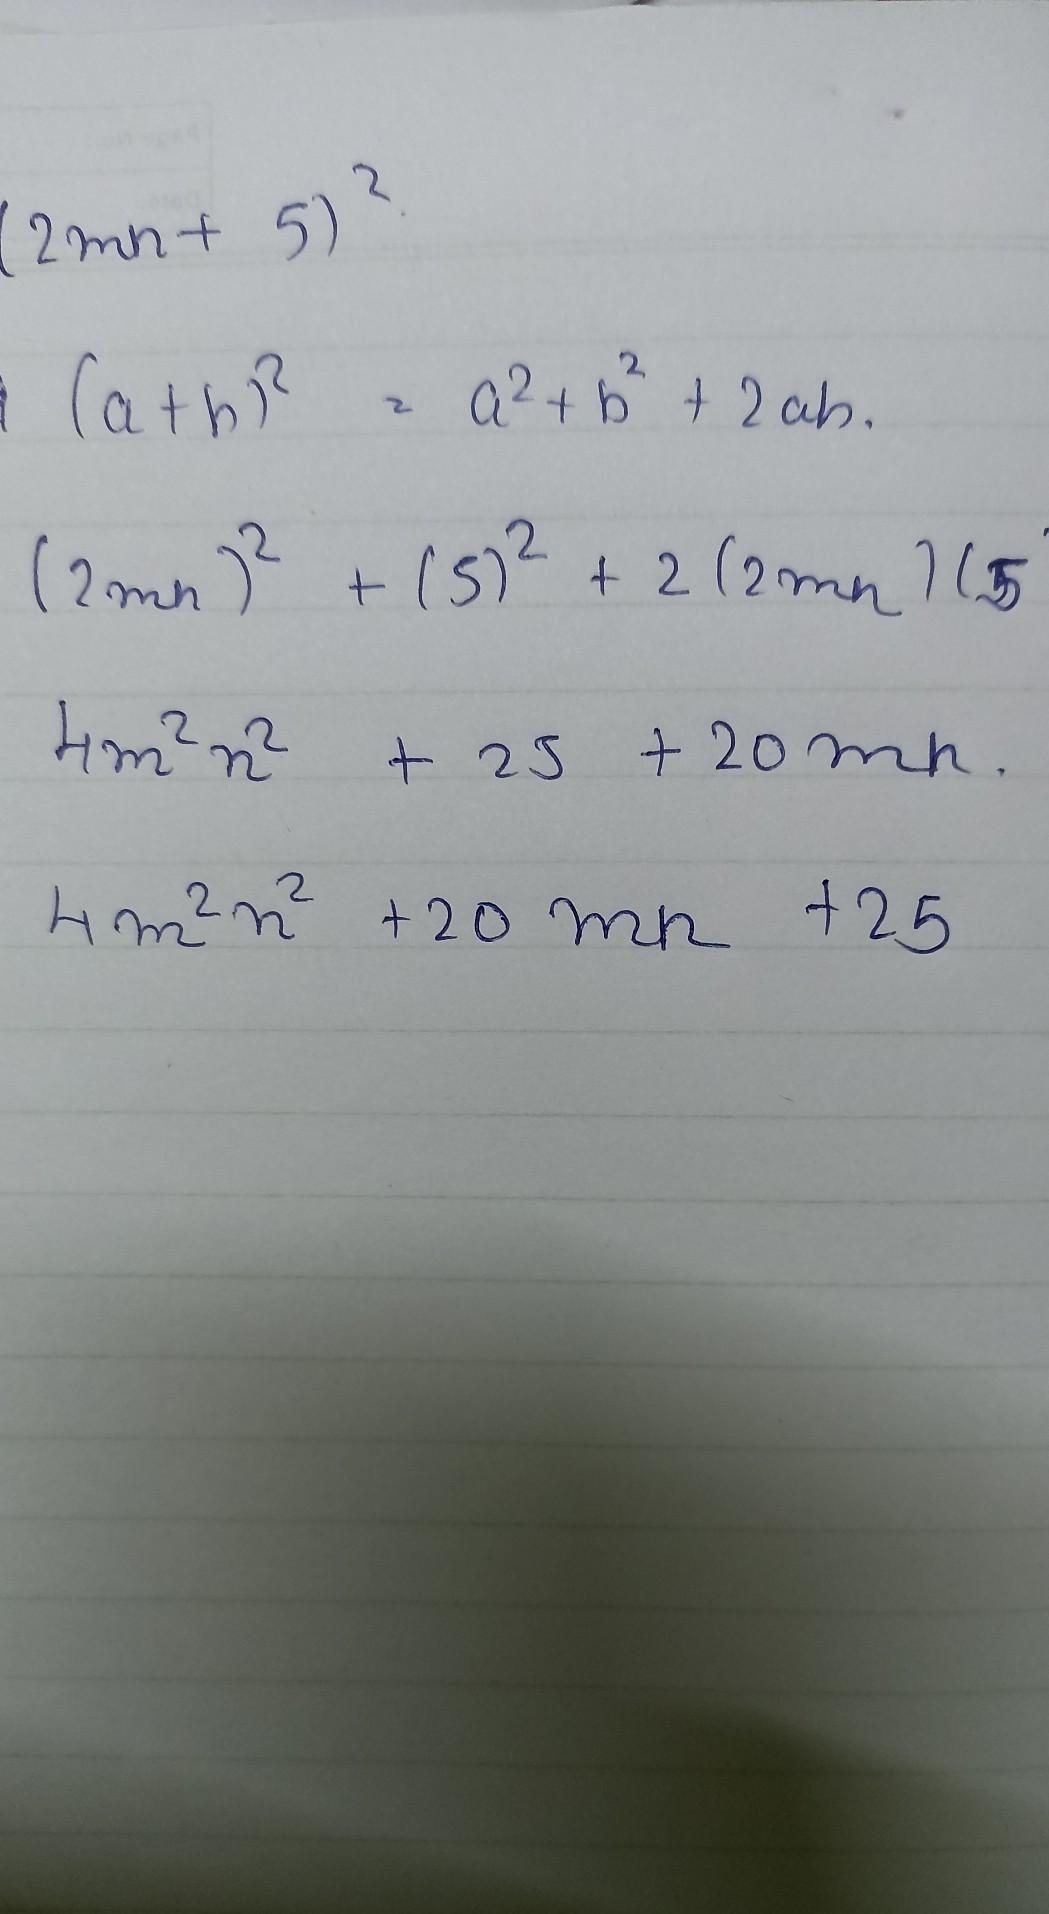 (2mn + 5)²
(a+b)² = a² + b² + 2ab.
(2mn)² + (5)² + 2(2mn)(5
4m²n² + 25 + 20mn.
4m²n² +20 mn +25